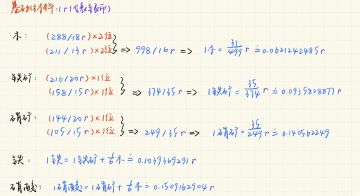 基础材料: (r代表
木: (288/18r)×2位
(211/13r)×2位 => 998/16r => 1木=31/499 r≐0.0621242485r
铁矿: (216/20r)×1位
(158/15r)×1位 => 374/35r => 1铁矿=35/374 r≐0.0935828877r
石膏矿: (144/20r)×1位
(105/15r)×1位 => 249/35r => 1石膏矿=35/249 r≐0.140562249
铁: 1铁=1铁矿+木≐0.1039369291r
石膏: 1石膏=1石膏矿+木≐0.1509162904r